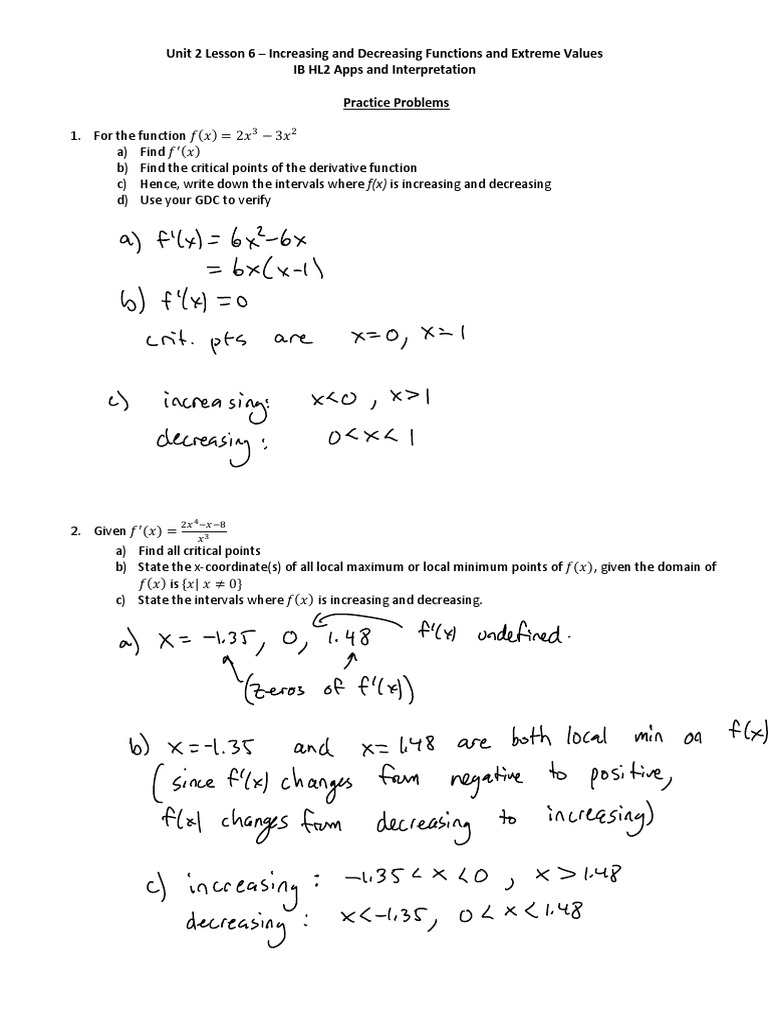 Unit 2 Lesson 6 – Increasing and Decreasing Functions and Extreme Values
IB HL2 Apps and Interpretation
Practice Problems
1. For the function f(x) = 2x³ − 3x²
a) Find f′(x)
b) Find the critical points of the derivative function
c) Hence, write down the intervals where f(x) is increasing and decreasing
d) Use your GDC to verify
a) f'(x) = 6x²-6x
= 6x(x-1)
b) f'(x) = 0
crit. pts are x=0, x=1
c) increasing: x<0, x>1
decreasing: 0<x<1
2. Given f′(x) = (2x⁴−x−8)/x³
a) Find all critical points
b) State the x-coordinate(s) of all local maximum or local minimum points of f(x), given the domain of
f(x) is {x| x ≠ 0}
c) State the intervals where f(x) is increasing and decreasing.
a) x = -1.35, 0, 1.48 f'(x) undefined.
(zeros of f'(x))
b) x=-1.35 and x=1.48 are both local min on f(x)
(since f'(x) changes from negative to positive,
f(x) changes from decreasing to increasing)
c) increasing: -1.35<x<0, x>1.48
decreasing: x<-1.35, 0<x<1.48